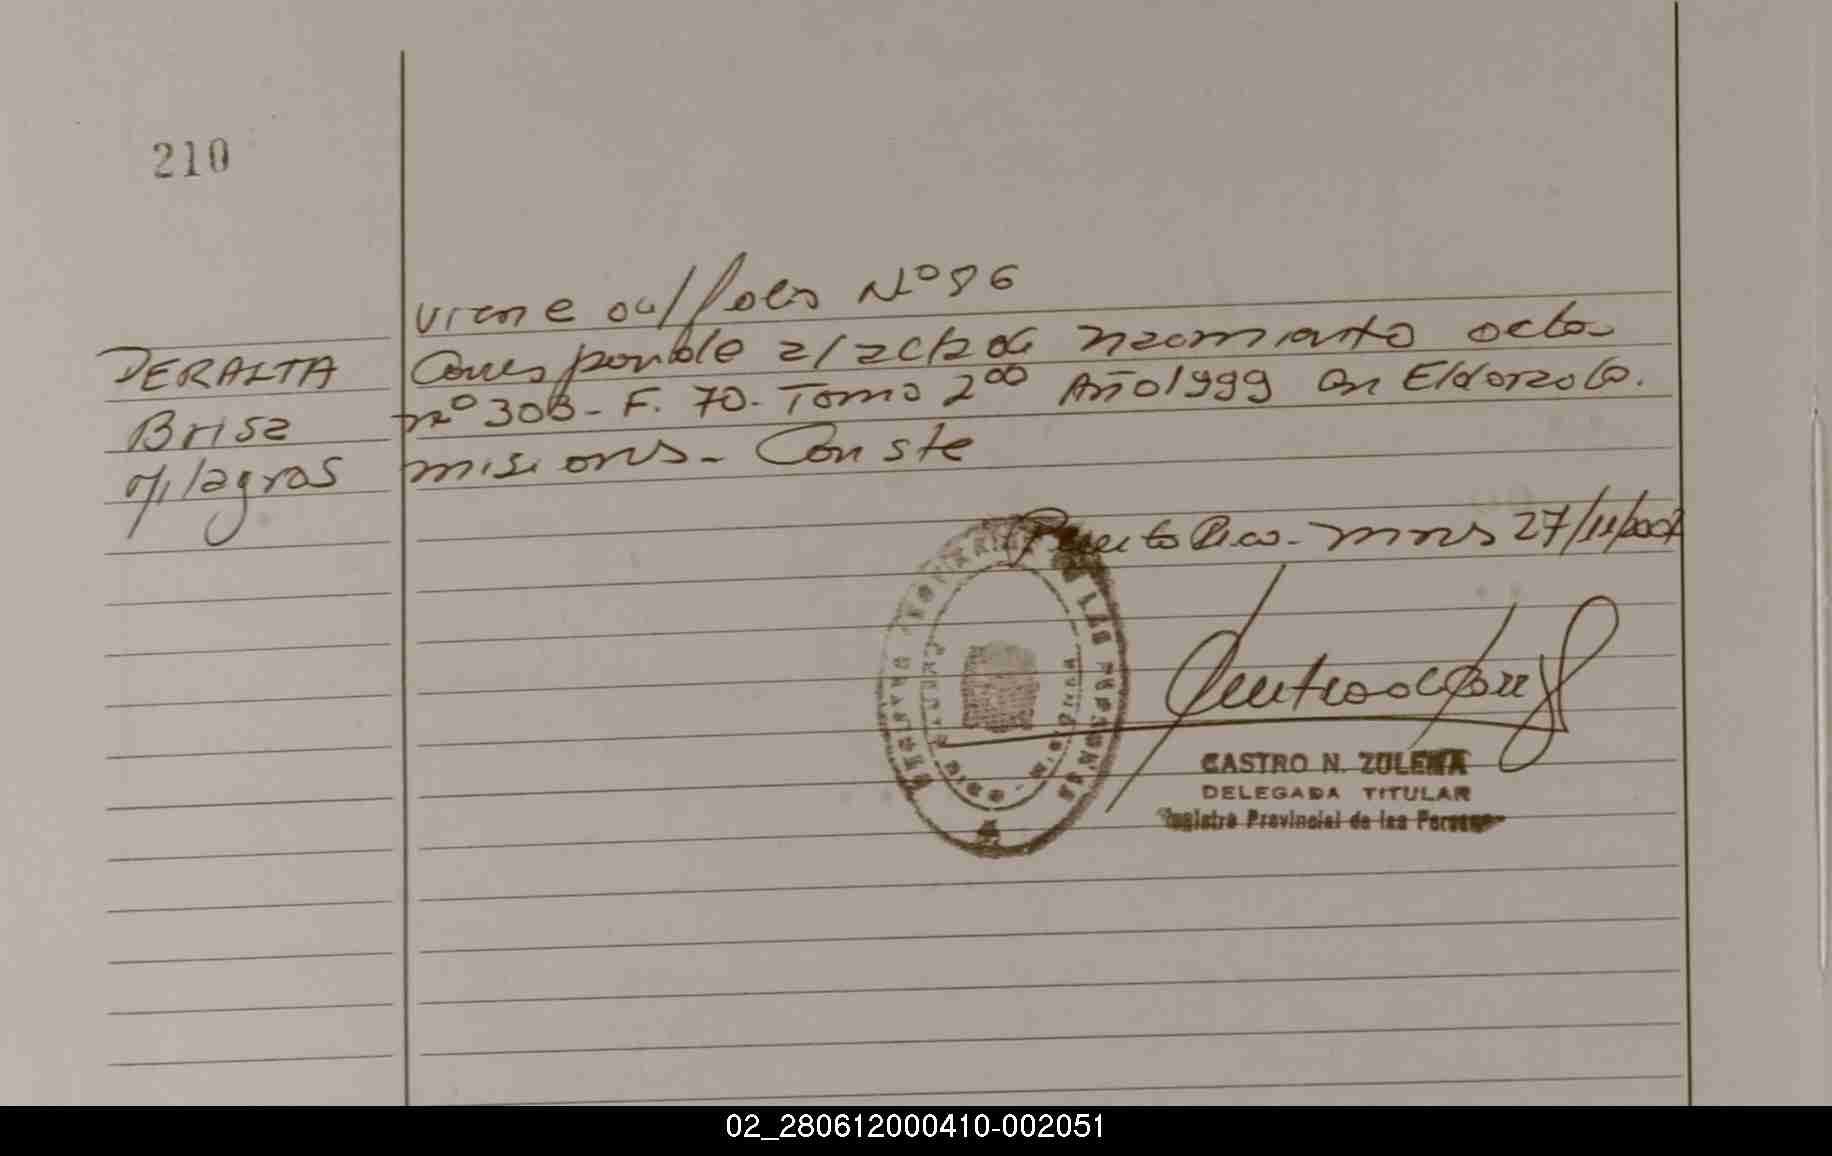 210
viene del folio Nº 86
PERALTA
Corresponde a/acta de nacimiento acta
Brisa
nº 308 - F. 70 - Tomo 2º Año 1999 en Eldorado.
Milagros
misiones - Conste
Puerto Rico - mnes 27/11/2007
LAS PERSONAS
CASTRO N. ZULEMA
DELEGADA TITULAR
Registro Provincial de las Personas
02_280612000410-002051